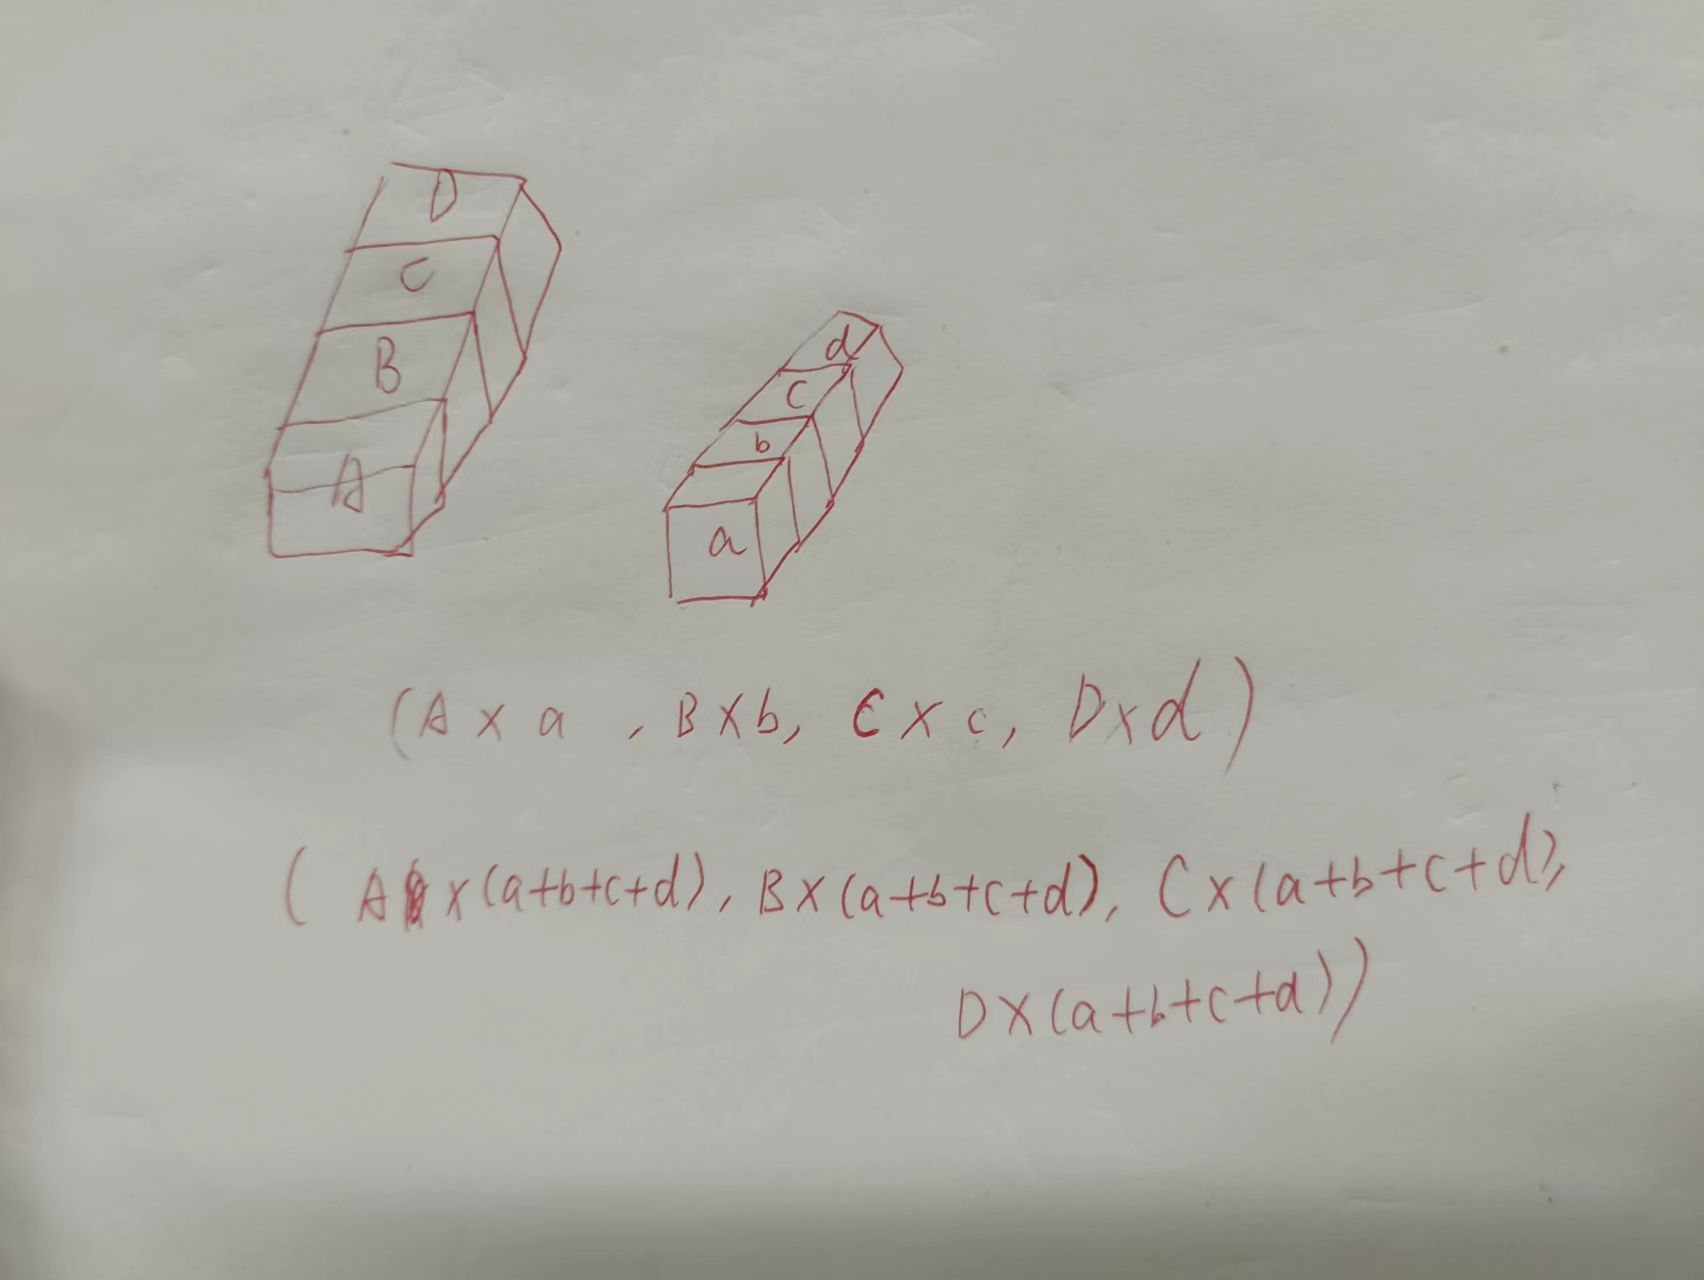 D
C
B
A
d
c
b
a
(A × a , B×b, C × c, D×d)
( A × (a+b+c+d), B×(a+b+c+d), C×(a+b+c+d),
D×(a+b+c+d))